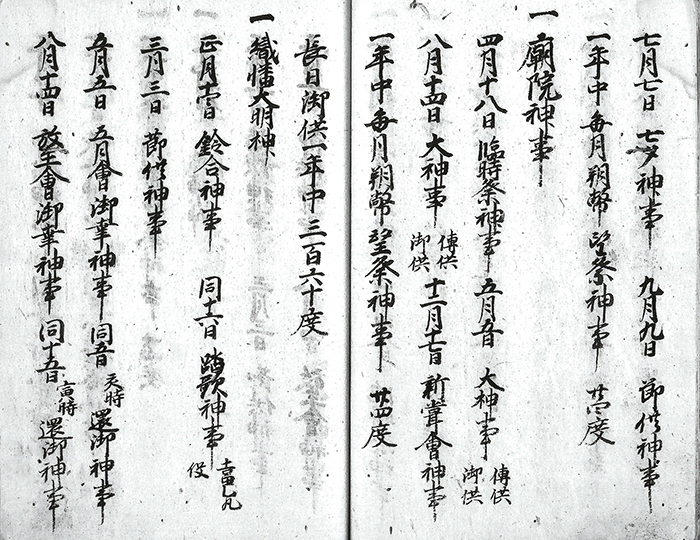 七月七日 七夕神事 九月九日 節供神事
一年中毎月朔幣望祭神事 廿四度
一 廟院神事
四月十八日 臨時祭神事 五月五日 大神事 傳供御供
八月十四日 大神事 傳供御供 十二月十七日 新嘗會神事
一年中毎月朔幣望祭神事 廿四度
長日御供一年中三百六十度
一 織幡大明神
正月十一日 鈴合神事 同十六日 踏歌神事 役
三月三日 節供神事
五月五日 五月會御幸神事 同五日 還御神事
八月十四日 放生會御幸神事 同十五日 寅時 還御神事